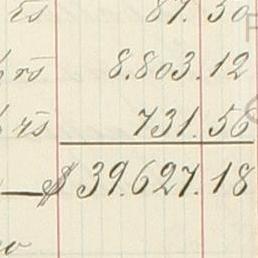 87.50
rs 8.803.12
rs 731.56
$ 39.627.18